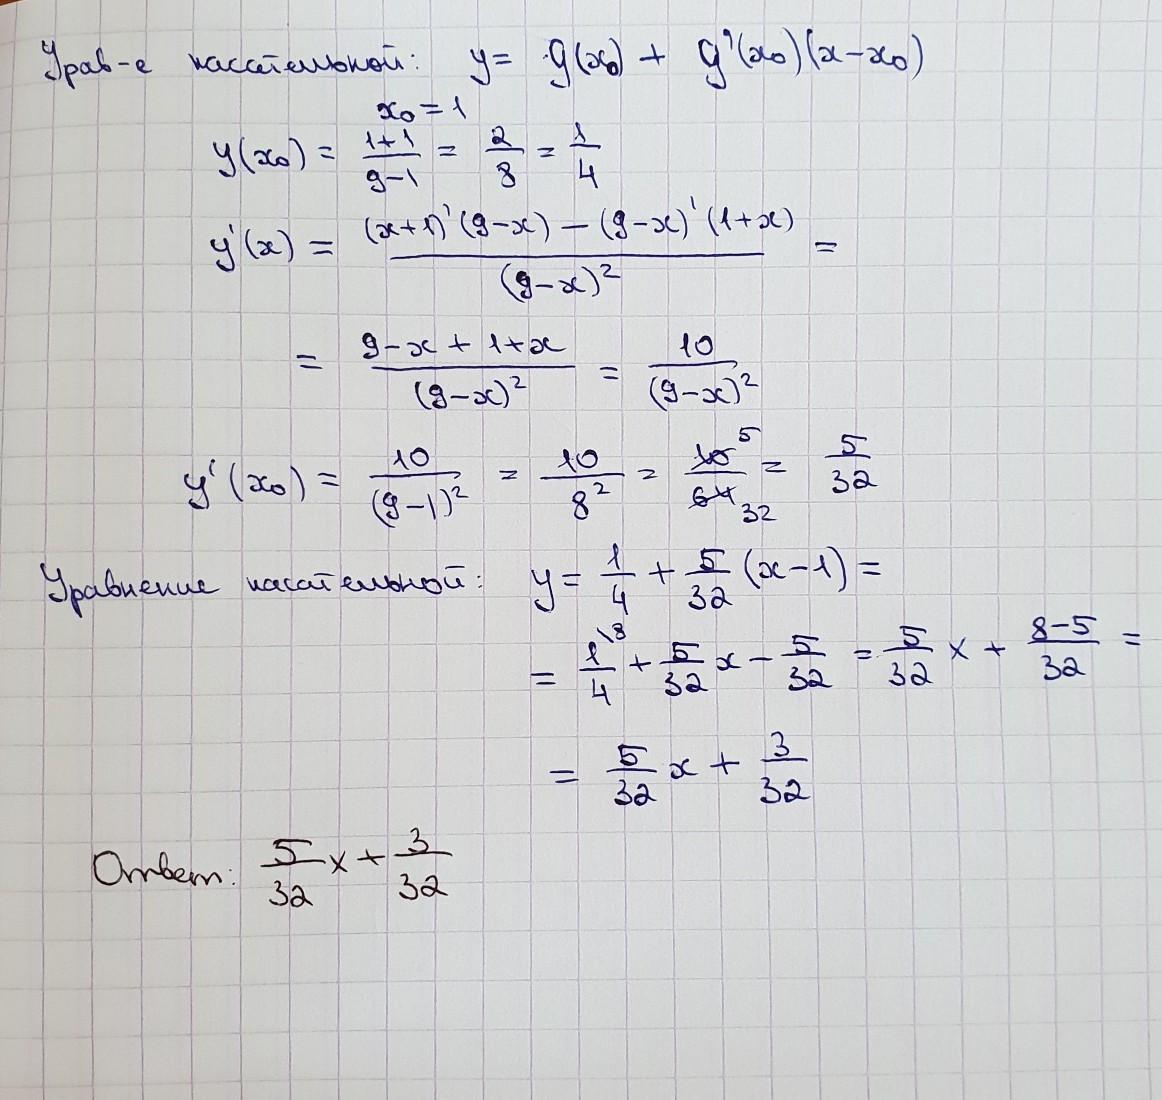 Урав-е касательной: y = y(x₀) + y'(x₀)(x-x₀)
x₀ = 1
y(x₀) = (1+1)/(9-1) = 2/8 = 1/4
y'(x) = ((x+1)'(9-x) - (9-x)'(1+x))/(9-x)² =
= (9-x+1+x)/(9-x)² = 10/(9-x)²
y'(x₀) = 10/(9-1)² = 10/8² = 10⁵/64₃₂ = 5/32
Уравнение касательной: y = 1/4 + 5/32 (x-1) =
= 1\⁸/4 + 5/32 x - 5/32 = 5/32 x + (8-5)/32 =
= 5/32 x + 3/32
Ответ: 5/32 x + 3/32